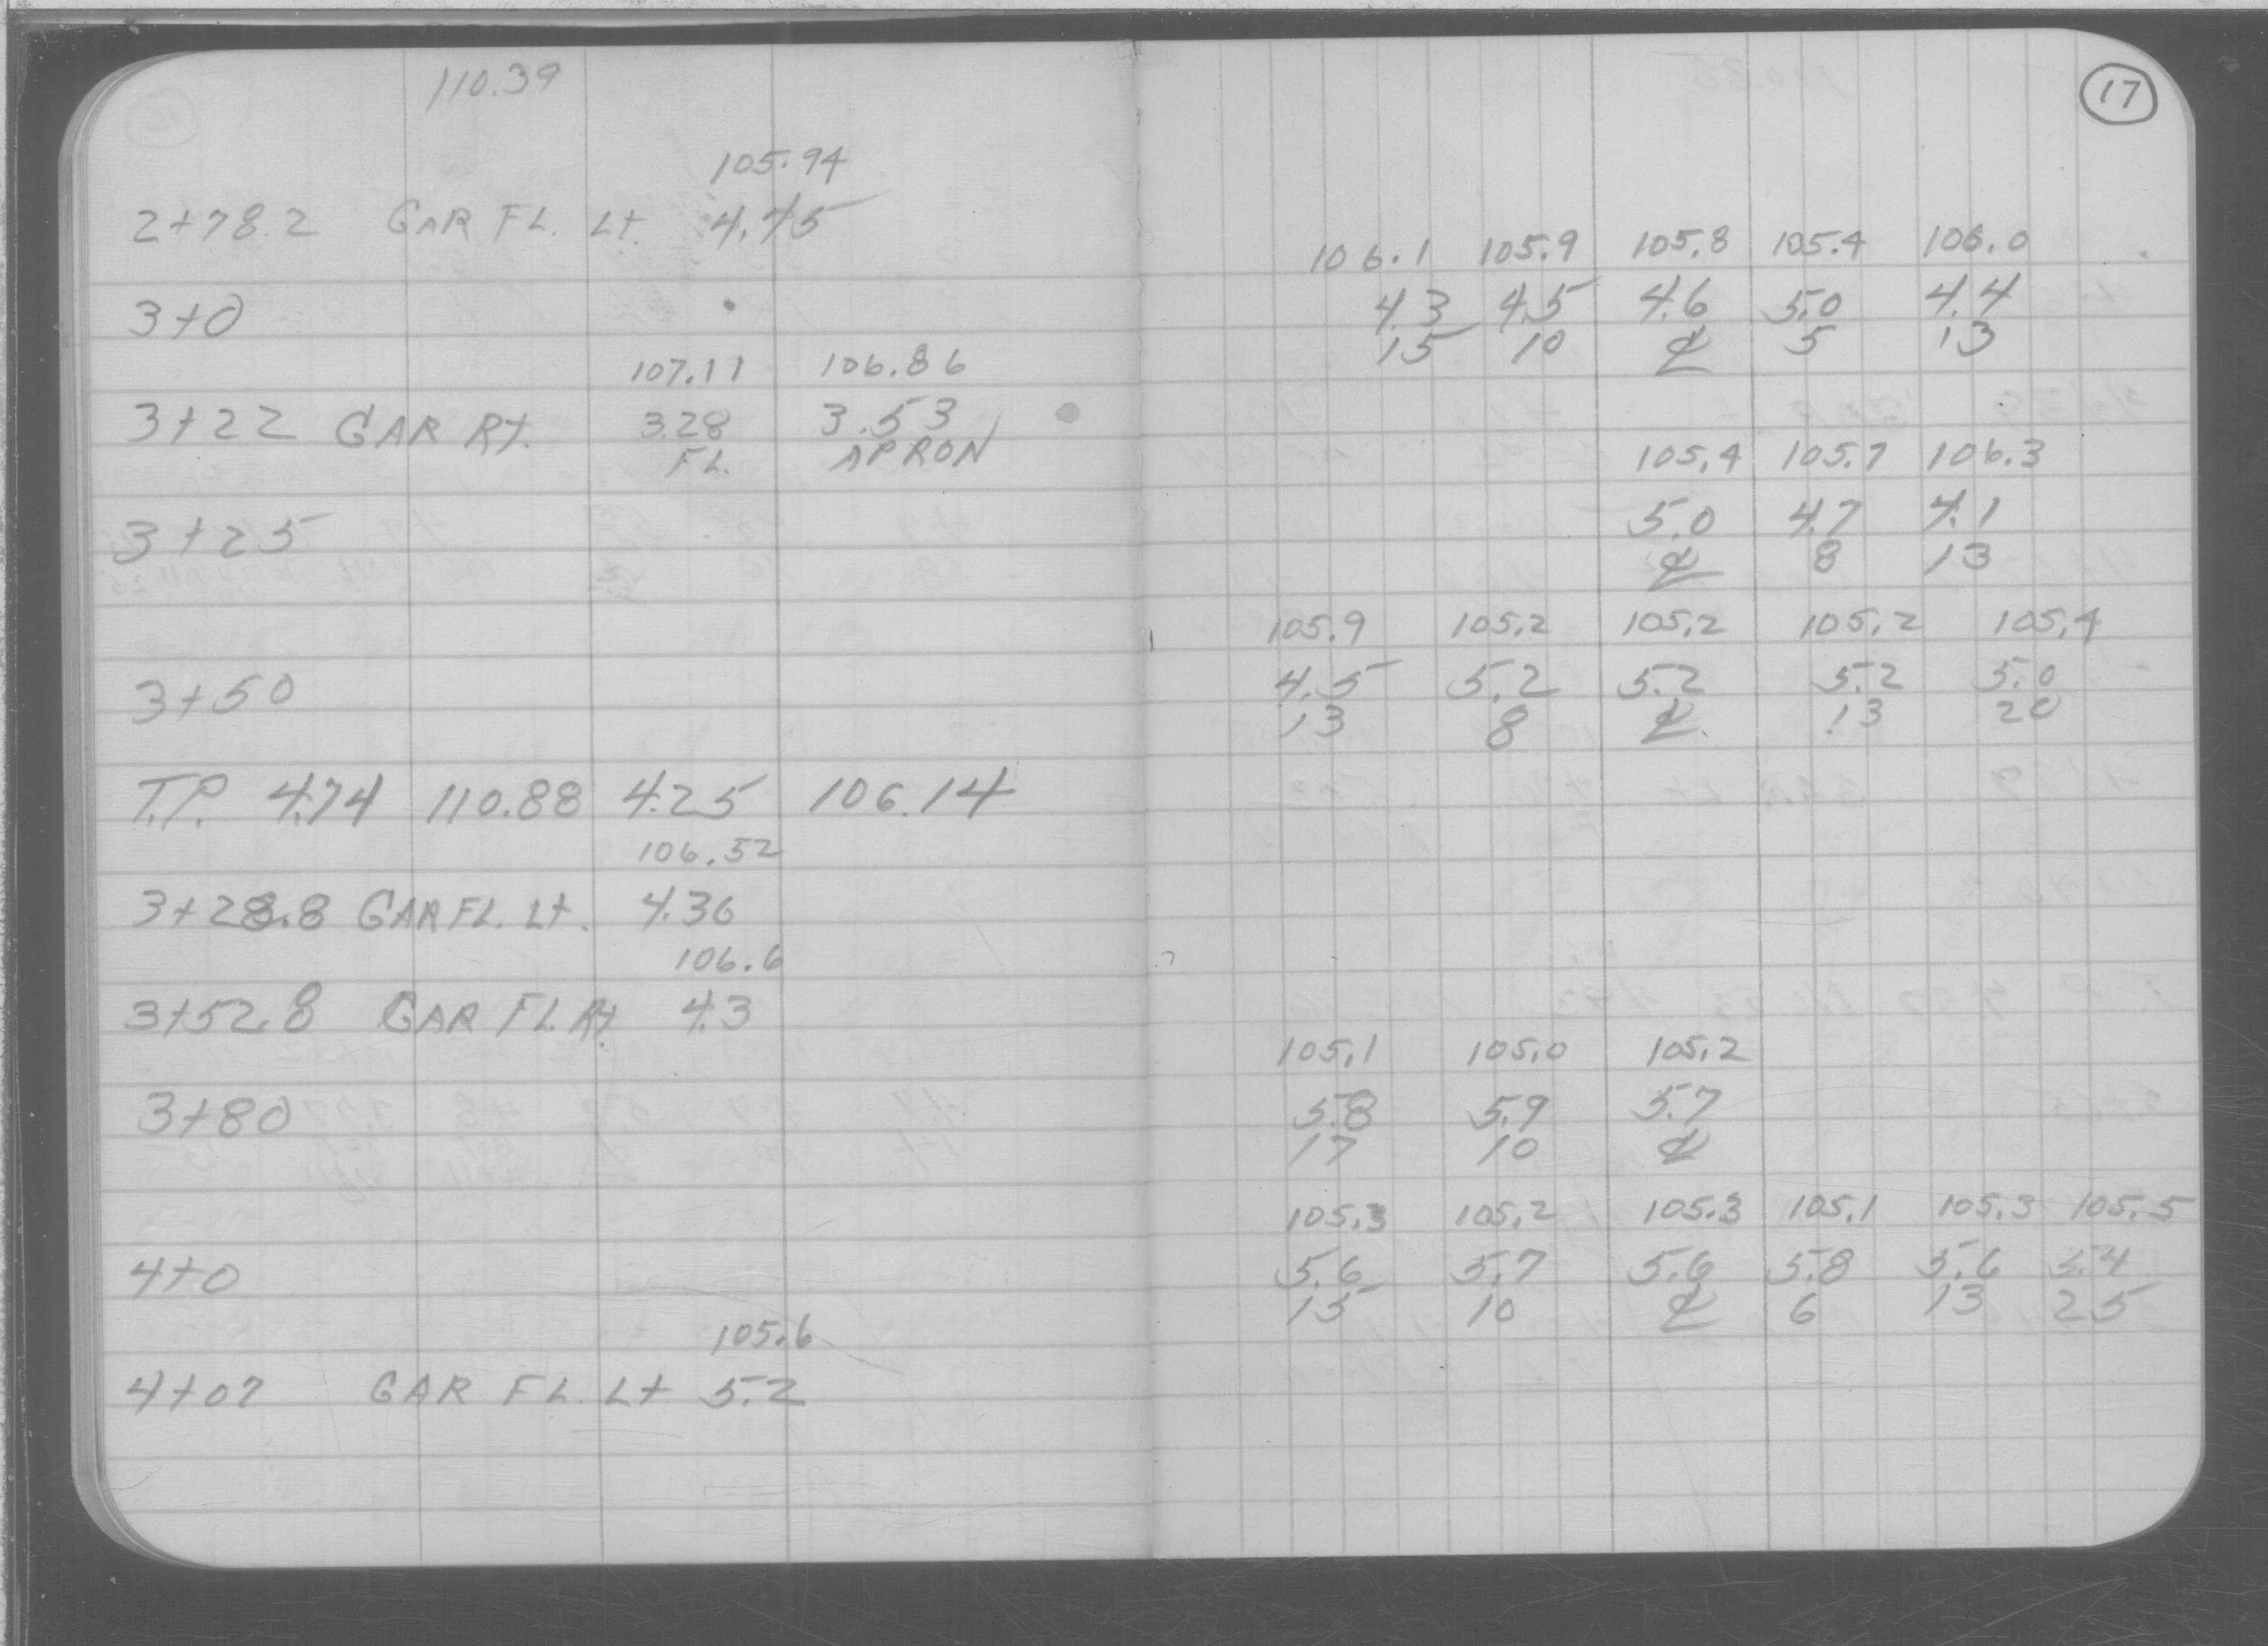 110.39
17
105.94
2+78.2 GAR FL. Lt. 4.45
106.1 105.9 105.8 105.4 106.0
3+0 4.3 4.5 4.6 5.0 4.4
15 10 ℄ 5 13
107.11 106.86
3+22 GAR Rt. 3.28 3.53
FL. APRON
105.4 105.7 106.3
3+25 5.0 4.7 4.1
℄ 8 13
105.9 105.2 105.2 105.2 105.4
3+50 4.5 5.2 5.2 5.2 5.0
13 8 ℄ 13 20
T.P. 4.74 110.88 4.25 106.14
106.52
3+28.8 GAR FL. Lt. 4.36
106.6
3+52.8 GAR FL. Rt. 4.3
105.1 105.0 105.2
3+80 5.8 5.9 5.7
17 10 ℄
105.3 105.2 105.3 105.1 105.3 105.5
4+0 5.6 5.7 5.6 5.8 5.6 5.4
15 10 ℄ 6 13 25
105.6
4+07 GAR FL. Lt 5.2